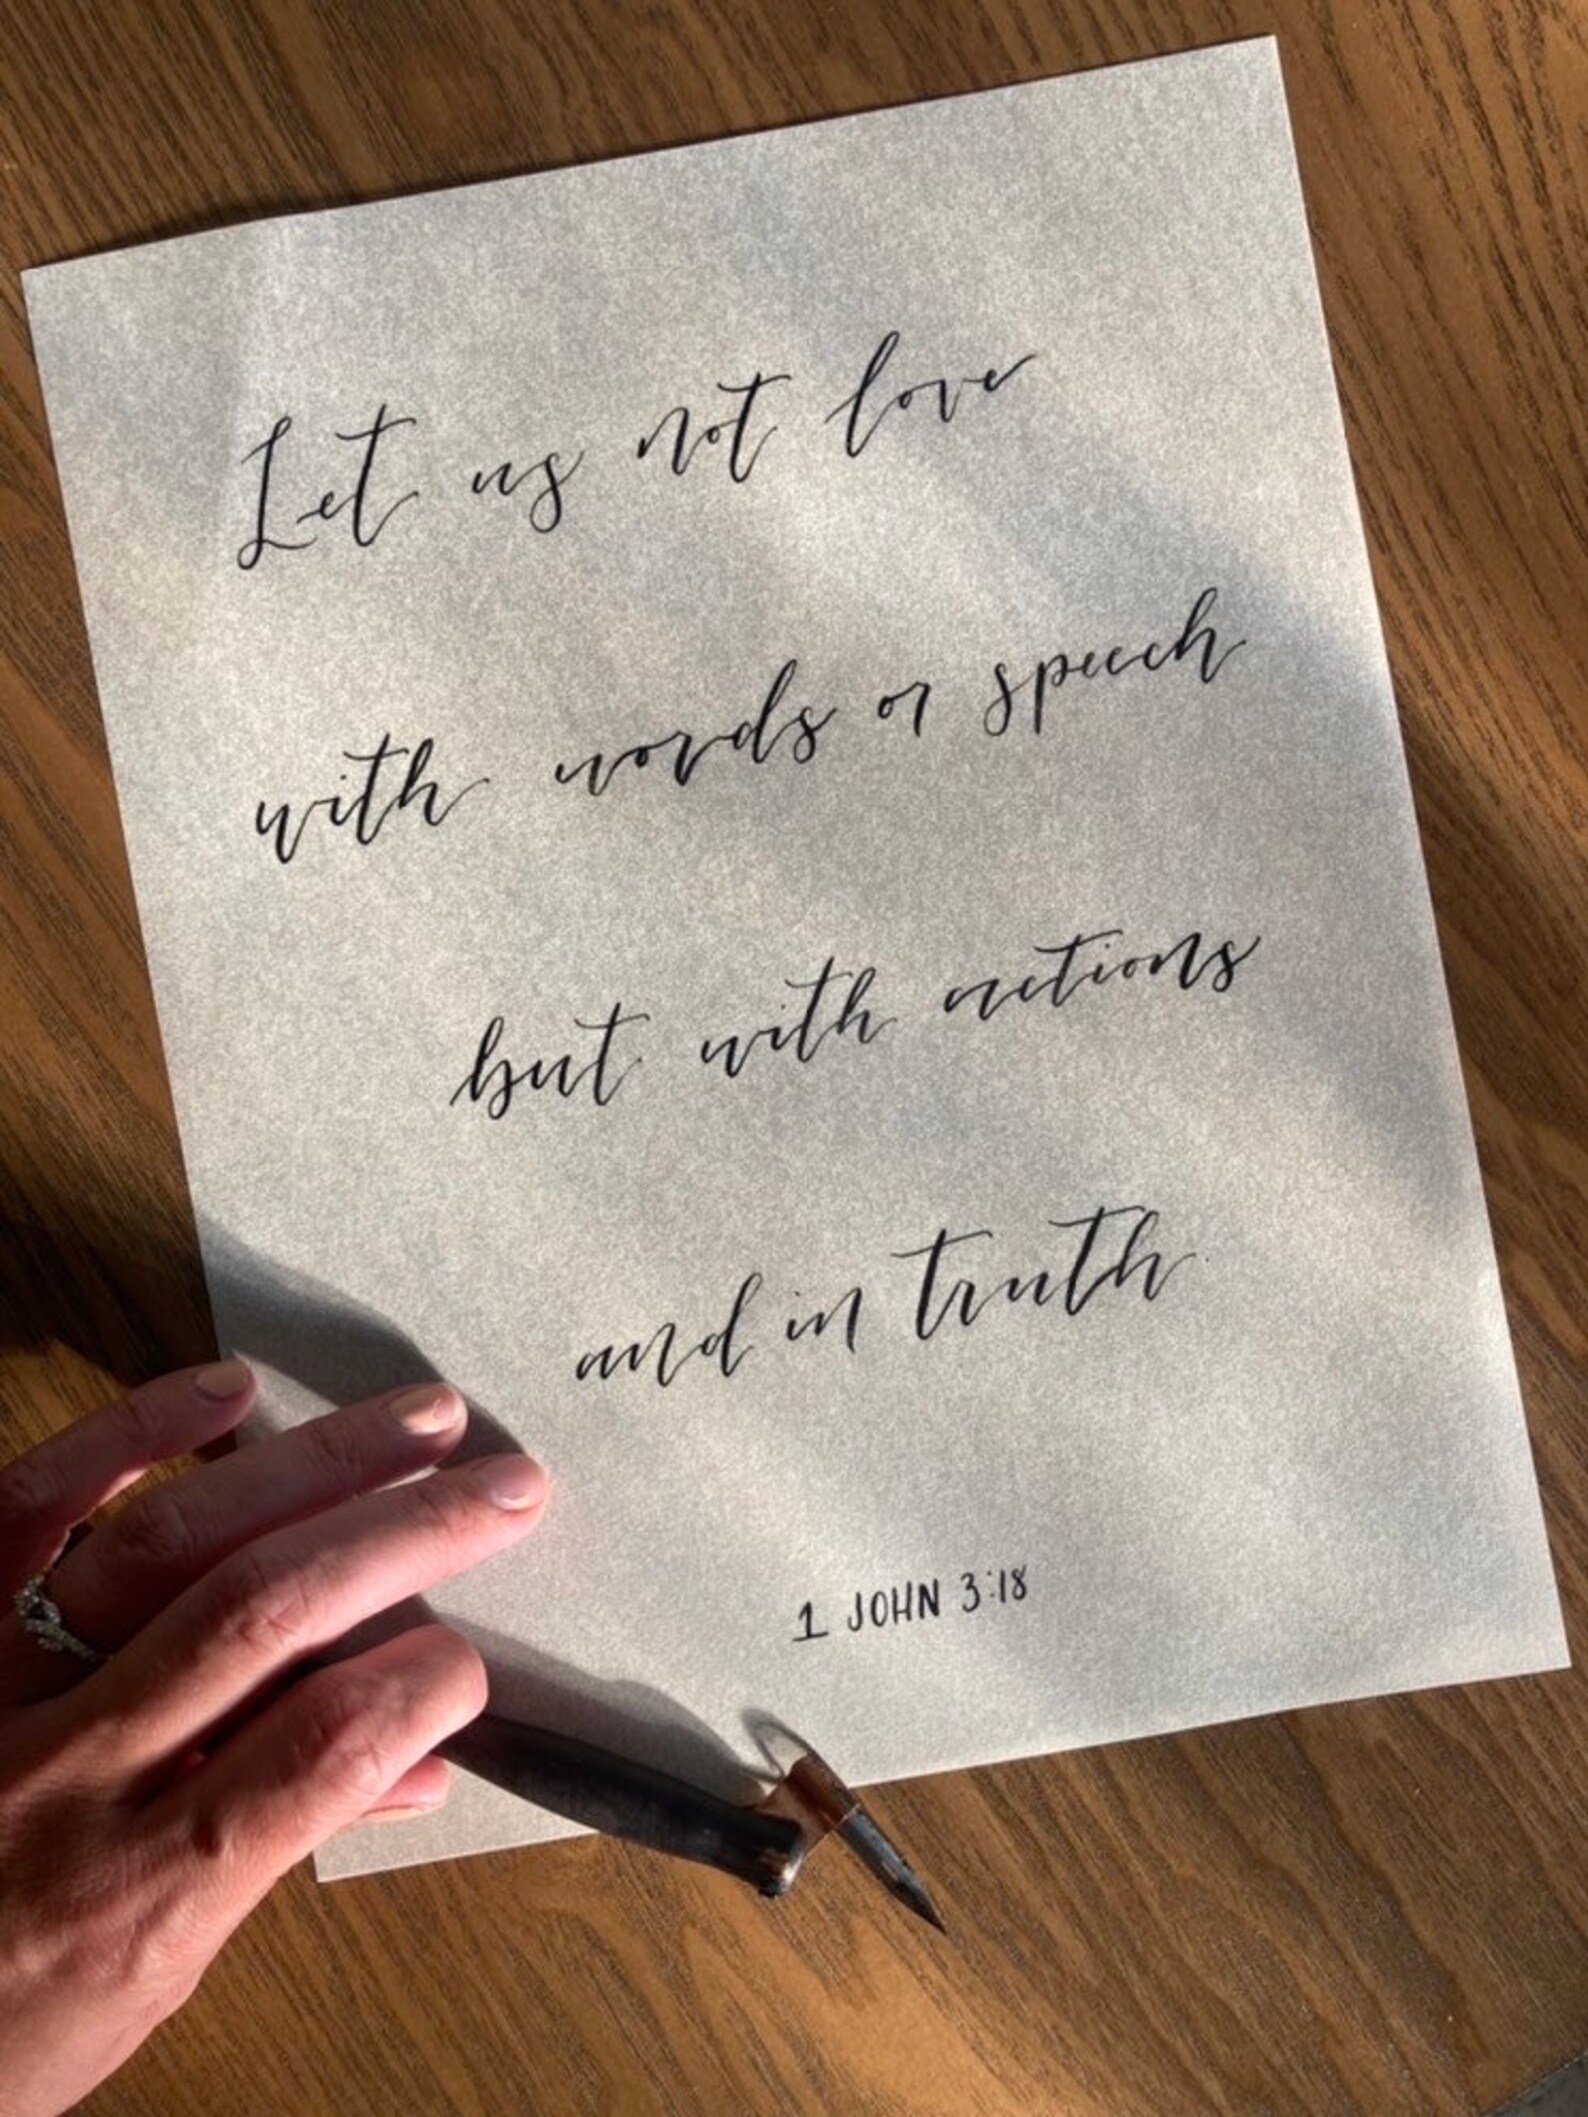 Let us not love
with words or speech
but with actions
and in truth
1 JOHN 3:18